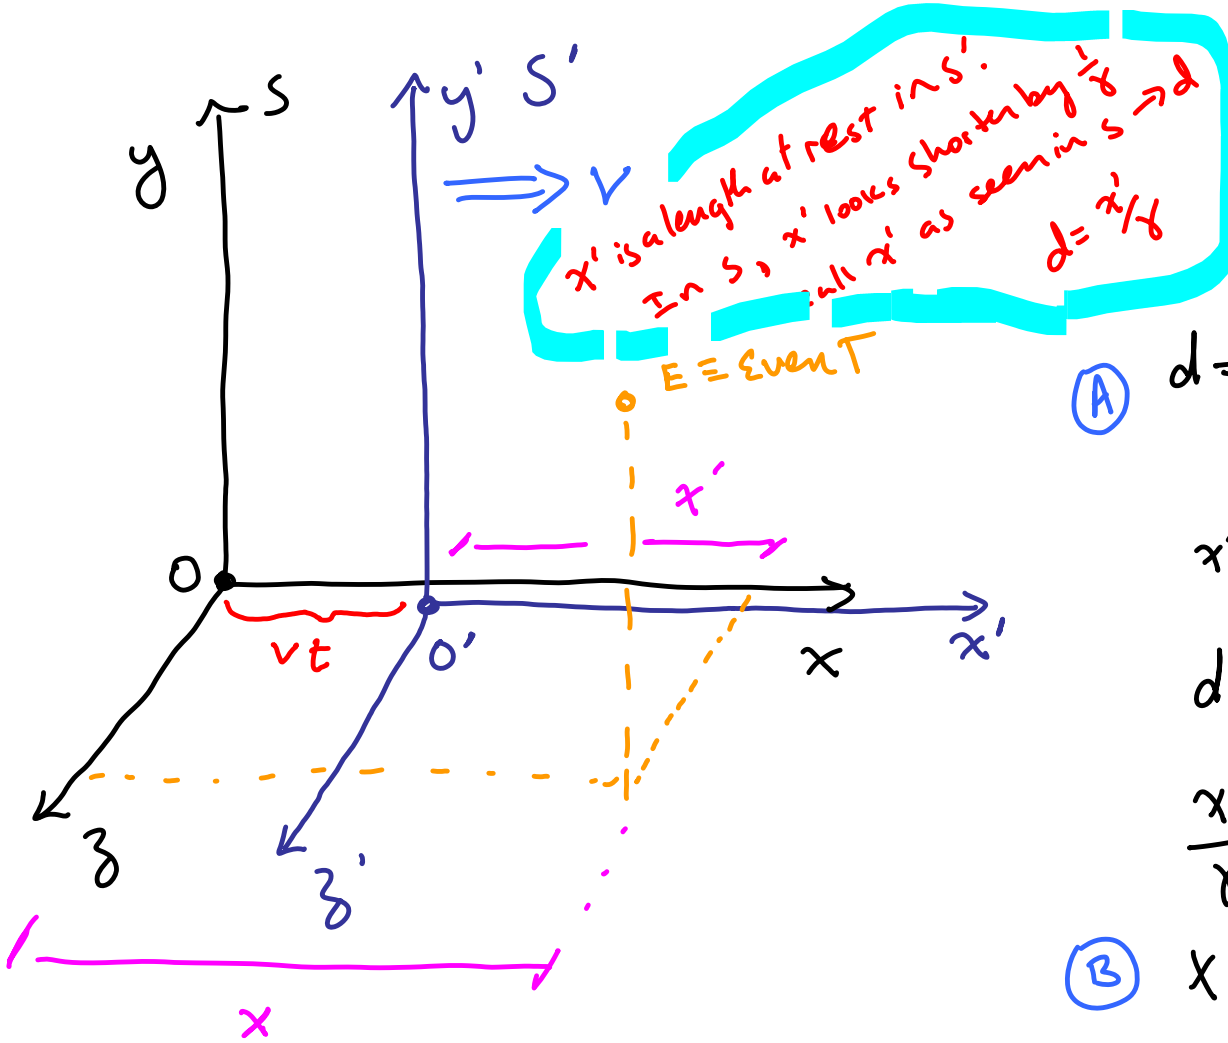 S
y' S'
y
⇒ v
x' is a length at rest in S'.
In S, x' looks shorter by 1/γ
call x' as seen in S → d
d = x'/γ
E ≡ Event
A
d =
x'
O
x'
vt
O'
x
x'
d
z
z'
x
B
x
x